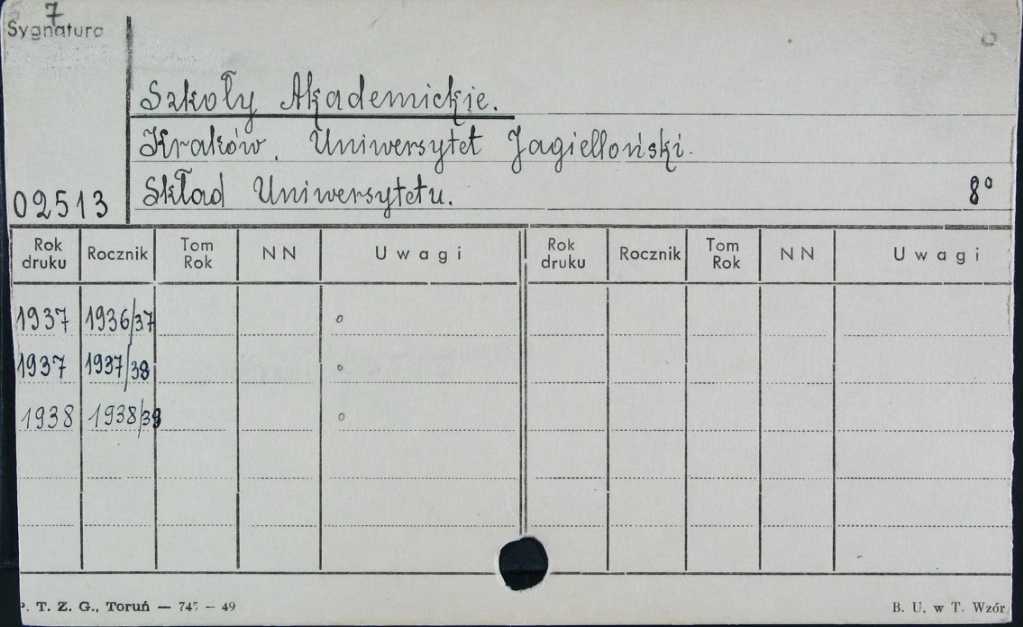 7
Sygnatura
Szkoły Akademickie.
Kraków. Uniwersytet Jagielloński.
Skład Uniwersytetu. 8°
02513
Rok druku Rocznik Tom Rok NN Uwagi Rok druku Rocznik Tom Rok NN Uwagi
1937 1936/37 °
1937 1937/38 °
1938 1938/39 °
. T. Z. G., Toruń — 747 — 49 B. U. w T. Wzór